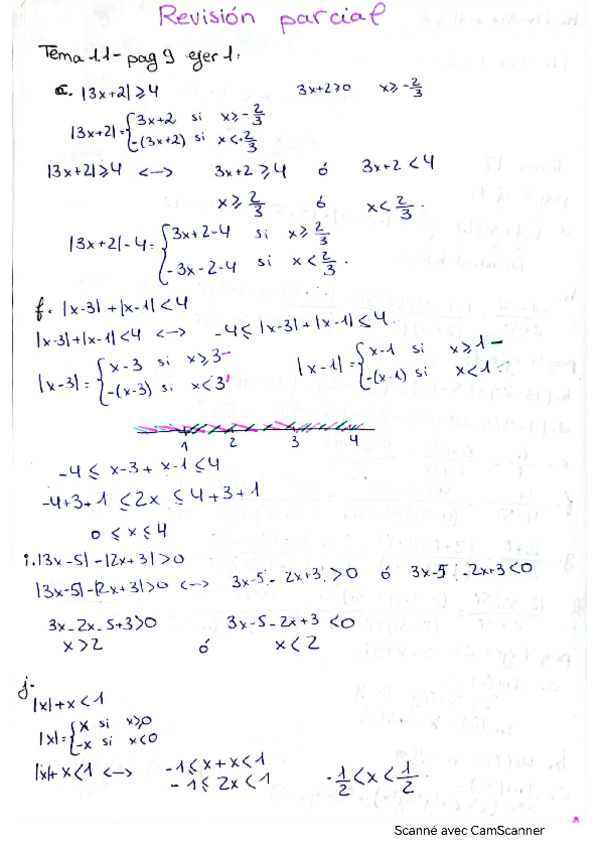 Revisión parcial
Tema 1.1 - pag 9 ejer 1:
c. |3x+2| ⩾ 4 3x+2 ⩾ 0 x ⩾ -2/3
|3x+2| = { 3x+2 si x ⩾ -2/3
-(3x+2) si x < -2/3
|3x+2| ⩾ 4 <-> 3x+2 ⩾ 4 ó 3x+2 < 4
x ⩾ 2/3 ó x < 2/3.
|3x+2| - 4 = { 3x+2-4 si x ⩾ 2/3
-3x-2-4 si x < 2/3.
f. |x-3| + |x-1| < 4
|x-3| + |x-1| < 4 <-> -4 ⩽ |x-3| + |x-1| ⩽ 4.
|x-3| = { x-3 si x ⩾ 3 |x-1| = { x-1 si x ⩾ 1
-(x-3) si x < 3 -(x-1) si x < 1
1 2 3 4
-4 ⩽ x-3 + x-1 ⩽ 4
-4+3+1 ⩽ 2x ⩽ 4+3+1
0 ⩽ x ⩽ 4
i. |3x-5| - |2x+3| > 0
|3x-5| - |2x+3| > 0 <-> 3x-5 - 2x+3 > 0 ó 3x-5 - 2x+3 < 0
3x-2x-5+3 > 0 3x-5-2x+3 < 0
x > 2 ó x < 2
j.
|x| + x < 1
|x| = { x si x ⩾ 0
-x si x < 0
|x| + x < 1 <-> -1 ⩽ x+x < 1
-1 ⩽ 2x < 1 -1/2 < x < 1/2.
Scanné avec CamScanner